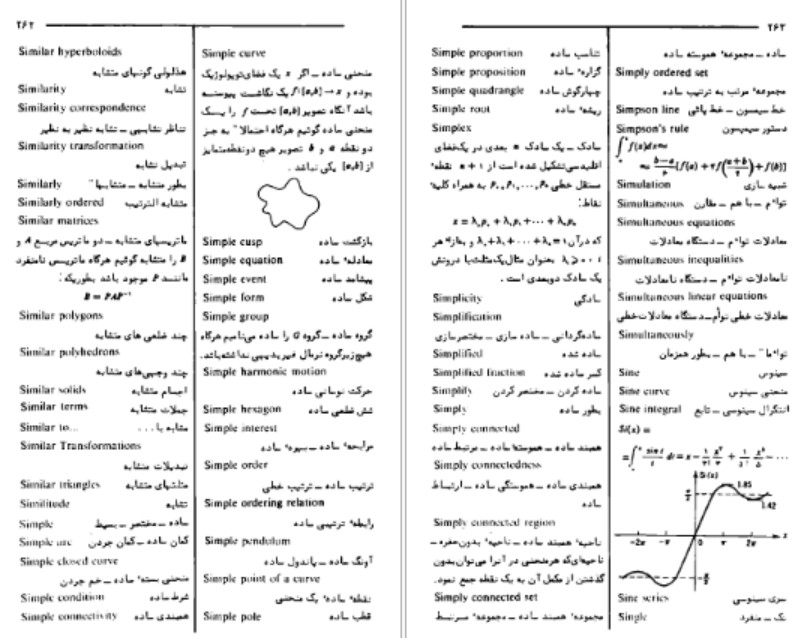 ۲۶۲
Similar hyperboloids
هذلولی گونهای متشابه
Similarity تشابه
Similarity correspondence
تناظر تشابهی ــ تشابه نظیر به نظیر
Similarity transformation
تبدیل تشابه
Similarly بطور متشابه ــ متشابهاً
Similarly ordered متشابه الترتیب
Similar matrices
ماتریسهای متشابه ــ دو ماتریس مربع A و
B را متشابه گوئیم هرگاه ماتریسی نامنفرد
مانند P موجود باشد بطوریکه:
B = PAP⁻¹
Similar polygons
چند ضلعی های متشابه
Similar polyhedrons
چند وجهی‌های متشابه
Similar solids اجسام متشابه
Similar terms جملات متشابه
Similar to... متشابه با ...
Similar Transformations
تبدیلات متشابه
Similar triangles مثلثهای متشابه
Similitude تشابه
Simple ساده ــ مختصر ــ بسیط
Simple arc کمان ساده ــ کمان جردن
Simple closed curve
منحنی بسته ساده ــ خم جردن
Simple condition شرط ساده
Simple connectivity همبندی ساده
Simple curve
منحنی ساده ــ اگر x یک فضای‌توپولوژیک
بوده و f:[a,b]→x یک نگاشت پیوسته
باشد آنگاه تصویر [a,b] تحت f را یک
منحنی ساده گوئیم هرگاه احتمالاً به جز
دو نقطه a و b تصویر هیچ دونقطه‌متمایز
از [a,b] یکی نباشد .
Simple cusp بازگشت ساده
Simple equation معادلهٔ ساده
Simple event پیشامد ساده
Simple form شکل ساده
Simple group
گروه ساده ــ گروه G را ساده می‌نامیم هرگاه
هیچ‌زیرگروه نرمال غیربدیهی نداشته‌باشد.
Simple harmonic motion
حرکت نوسانی ساده
Simple hexagon شش ضلعی ساده
Simple interest
مرابحهٔ ساده ــ بهرهٔ ساده
Simple order
ترتیب ساده ــ ترتیب خطی
Simple ordering relation
رابطهٔ ترتیبی ساده
Simple pendulum
آونگ ساده ــ پاندول ساده
Simple point of a curve
نقطهٔ سادهٔ یک منحنی
Simple pole قطب ساده
۲۶۳
Simple proportion تناسب ساده
Simple proposition گزارهٔ ساده
Simple quadrangle چهارگوش ساده
Simple root ریشهٔ ساده
Simplex
سادک ــ یک سادک n بعدی در یک‌فضای
اقلیدسی‌تشکیل شده است از n + 1 نقطهٔ
مستقل خطی p₀, p₁, ..., pₙ به همراه کلیهٔ
نقاط:
x = λ₀p₀ + λ₁p₁ + ··· + λₙpₙ
که درآن λ₀+λ₁+···+λₙ=1 و بازاءٔ هر
i، λᵢ ⩾ 0 بعنوان مثال‌یک‌مثلث‌با درونش
یک سادک دوبعدی است .
Simplicity سادگی
Simplification
ساده‌گردانی ــ ساده سازی ــ مختصرسازی
Simplified ساده شده
Simplified fraction کسر ساده شده
Simplify ساده کردن ــ مختصر کردن
Simply بطور ساده
Simply connected
همبند ساده ــ همبستهٔ ساده ــ مرتبط ساده
Simply connectedness
همبندی ساده ــ همبستگی ساده ــ ارتباط
ساده
Simply connected region
ناحیهٔ همبند ساده ــ ناحیهٔ بدون‌حفره ــ
ناحیه‌ای‌که هرمنحنی در آنرا می‌توان‌بدون
گذشتن از مکمل آن به یک نقطه جمع نمود.
Simply connected set
مجموعهٔ همبند ساده ــ مجموعهٔ مرتبط
ساده ــ مجموعهٔ همبسته ساده
Simply ordered set
مجموعهٔ مرتب به ترتیب ساده
Simpson line خط سیمسون ــ خط پائی
Simpson's rule دستور سیمپسون
∫ f(x)dx≈
≈ (b−a)/۶ [f(a) + ۴f((a+b)/۲) + f(b)]
Simulation شبیه سازی
Simultaneous توأم ــ با هم ــ مقارن
Simultaneous equations
معادلات توأم ــ دستگاه معادلات
Simultaneous inequalities
نامعادلات توأم ــ دستگاه نامعادلات
Simultaneous linear equations
معادلات خطی توأم‌ــ دستگاه معادلات‌خطی
Simultaneously
توأماً ــ با هم ــ بطور همزمان
Sine سینوس
Sine curve منحنی سینوس
Sine integral انتگرال سینوسی ــ تابع
Si(x) =
=∫ (sin t)/t dt = x − 1/3! x³/3 + 1/5! x⁵/5 − ···
Si(x)
π/2
1.85
1.42
−2π −π 0 π 2π x
−π/2
Sine series سری سینوسی
Single تک ــ منفرد